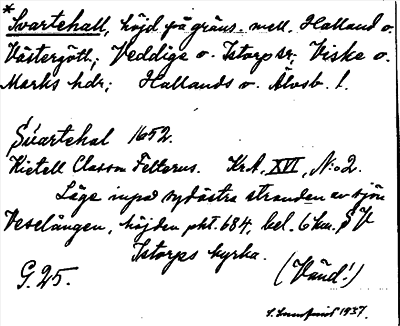 * Svartehall, höjd på gräns. mell. Halland o.
Västergötl.; Veddige o. Istorp sr; Viske o.
Marks hdr; Hallands o. Älvsb. l.
Suartehal 1652.
Kietell Classon Felterus. Kr.A, XVI, N:o 2.
Läge inpå sydöstra stranden av sjön
Veselången, höjden pkt. 684, bel. 6 km. SV
Istorps kyrka.
G. 25. (Vänd!)
1937.